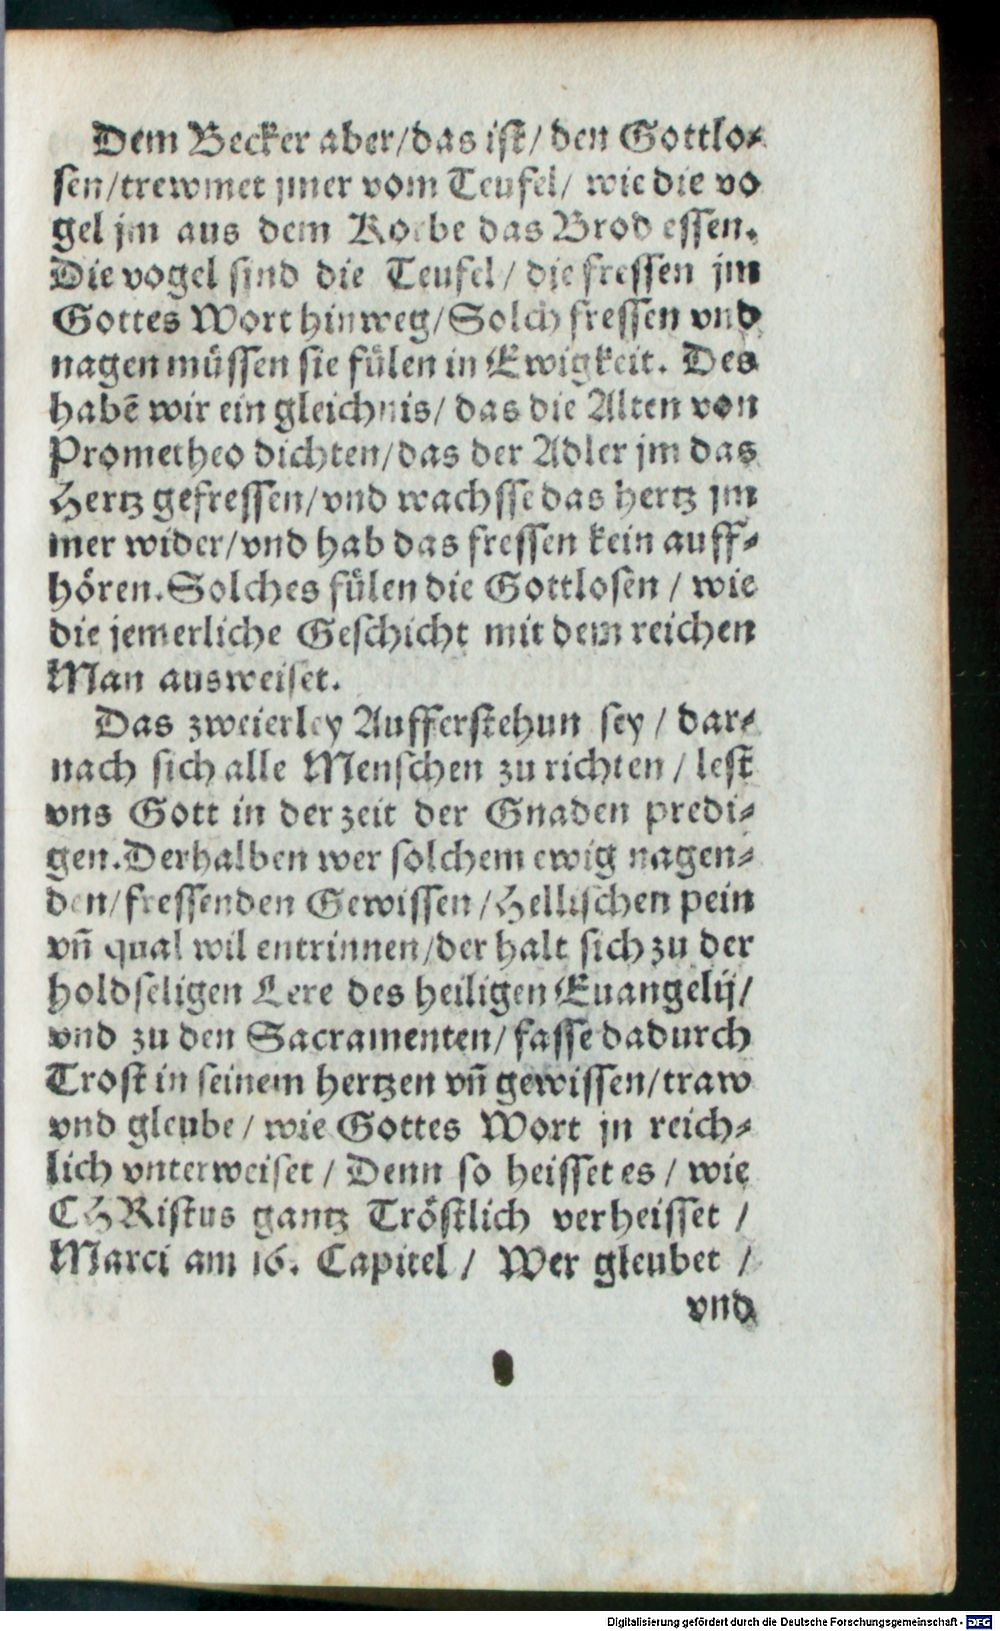 Dem Becker aber/das ist/ den Gottlo⸗
sen/trewmet jmer vom Teufel/ wie die vo
gel jm aus dem Korbe das Brod essen.
Die vogel sind die Teufel/ die fressen jm
Gottes Wort hinweg/Solch fressen vnd
nagen müssen sie fülen in Ewigkeit. Des
habē wir ein gleichnis/ das die Alten von
Prometheo dichten/das der Adler jm das
Hertz gefressen/vnd wachsse das hertz jm
mer wider/vnd hab das fressen kein auff⸗
hören. Solches fülen die Gottlosen / wie
die jemerliche Geschicht mit dem reichen
Man ausweiset.
Das zweierley Aufferstehun sey / dar⸗
nach sich alle Menschen zu richten / lest
vns Gott in der zeit der Gnaden predi⸗
gen. Derhalben wer solchem ewig nagen⸗
den/fressenden Gewissen/Hellischen pein
vñ qual wil entrinnen/der halt sich zu der
holdseligen Lere des heiligen Euangelij/
vnd zu den Sacramenten/fasse dadurch
Trost in seinem hertzen vñ gewissen/traw
vnd gleube/ wie Gottes Wort jn reich⸗
lich vnterweiset / Denn so heisset es / wie
CHRistus gantz Tröstlich verheisset /
Marci am 16. Capitel / Wer gleubet /
vnd
Digitalisierung gefördert durch die Deutsche Forschungsgemeinschaft - DFG